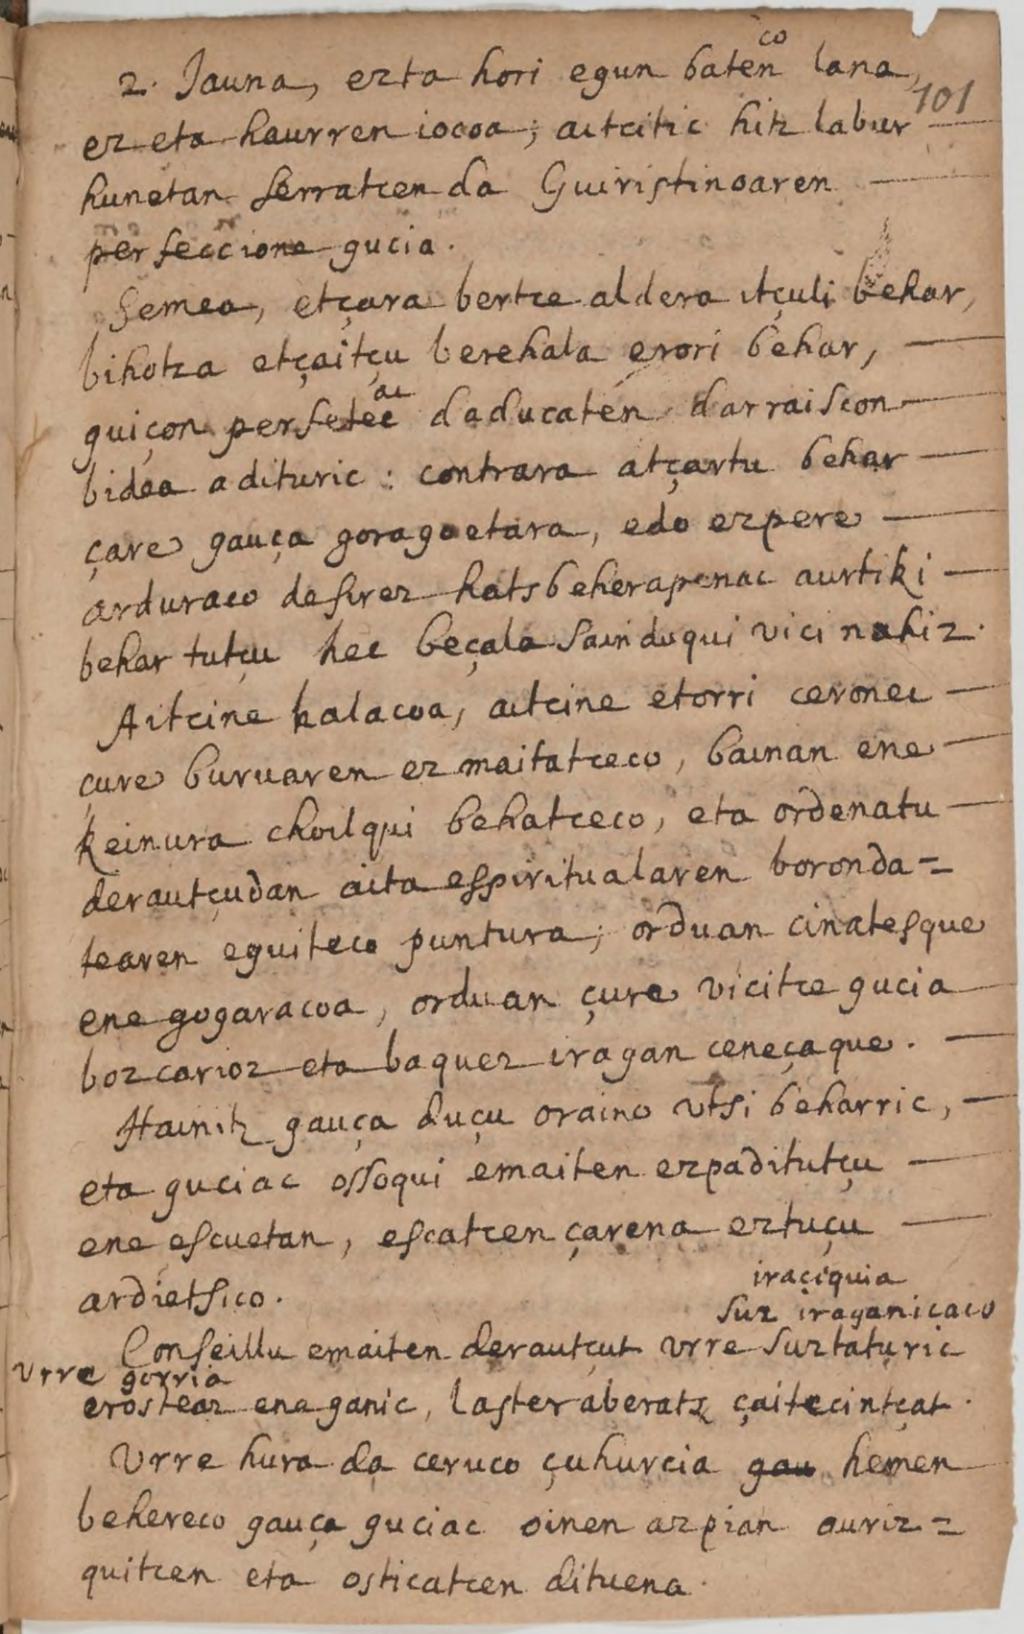 co
2. Jauna, ezta hori egun baten lana,
101
ez eta haurren iocoa; aitcitic hitz labur
hunetan serratcen da Guiristinoaren
perfeccione gucia.
Semea, etçara bertce aldera itçuli behar,
bihotza etçaitçu berehala erori behar,
ac
guiçon perfetec daducaten darraiscon
bidea adituric : contrara atçartu behar
çare gauça goragoetara, edo ezpere
arduraco desirez hatsbeherapenac aurtiki
behar tutçu hec beçala sainduqui vici nahiz.
Aitcine halacoa, aitcine etorri ceronec
çure buruaren ez maitatceco, bainan ene
keinura choilqui behatceco, eta ordenatu
derautçudan aita espiritualaren boronda=
tearen eguiteco puntura; orduan cinatesque
ene gogaracoa, orduan çure vicitce gucia
bozcarioz eta baquez iragan ceneçaque.
Hainitz gauça duçu oraino utsi beharric,
eta guciac ossoqui emaiten ezpaditutçu
ene escuetan, escatcen çarena eztuçu
ardietsico.
iraciquia
suz iraganicaco
Conseillu emaiten derautçut urre suztaturic
urre gorria
erosteaz ene ganic, laster aberatz çaitecintçat.
Urre hura da ceruco çuhurcia gau hemen
behereco gauça guciac oinen azpian ouriz=
quitcen eta osticatcen dituena.